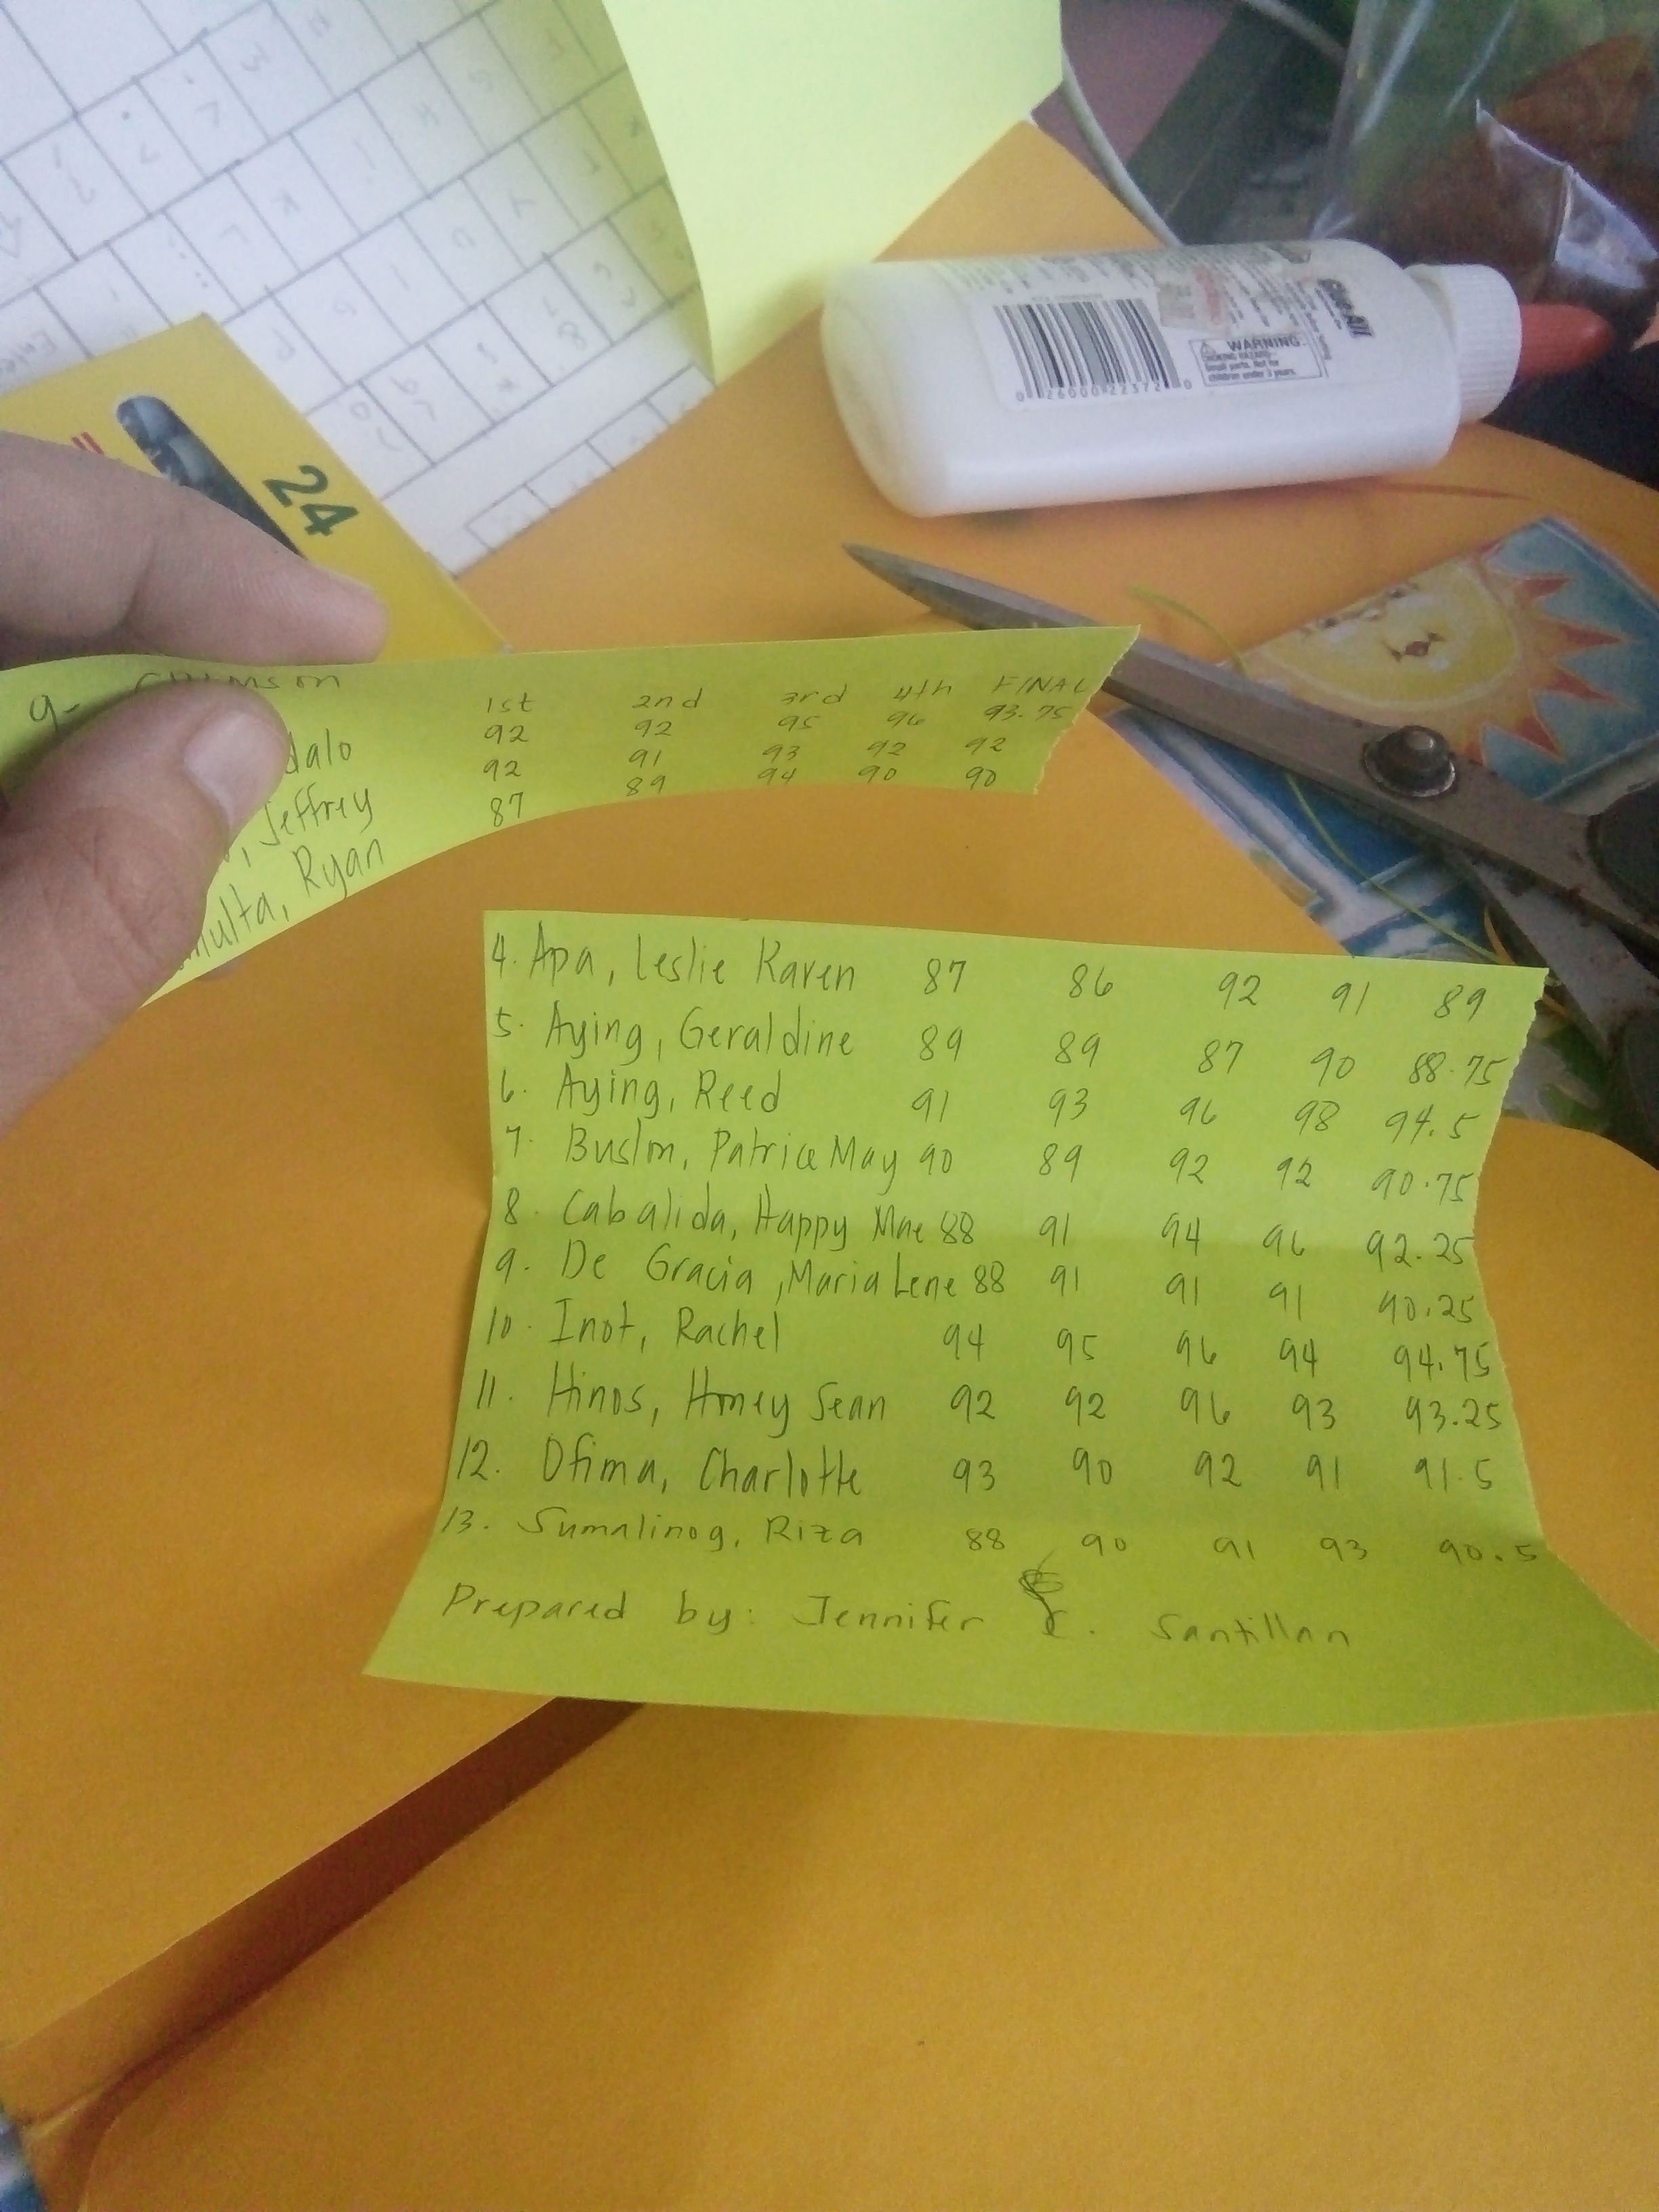 24
Glue-All
WARNING:
CHOKING HAZARD—
Small parts. Not for
children under 3 years.
0 26000 22372 0
9- Crimson
1st 2nd 3rd 4th FINAL
dalo 92 92 95 96 93.75
, Jeffrey 92 91 93 92 92
multa, Ryan 87 89 94 90 90
4. Apa, Leslie Karen 87 86 92 91 89
5. Aying, Geraldine 89 89 87 90 88.75
6. Aying, Reed 91 93 96 98 94.5
7. Buslon, Patrice May 90 89 92 92 90.75
8. Cabalida, Happy Mae 88 91 94 96 92.25
9. De Gracia, Maria Lene 88 91 91 91 90.25
10. Inot, Rachel 94 95 96 94 94.75
11. Hinos, Honey Sean 92 92 96 93 93.25
12. Ofima, Charlotte 93 90 92 91 91.5
13. Sumalinog, Riza 88 90 91 93 90.5
Prepared by: Jennifer C. Santillan